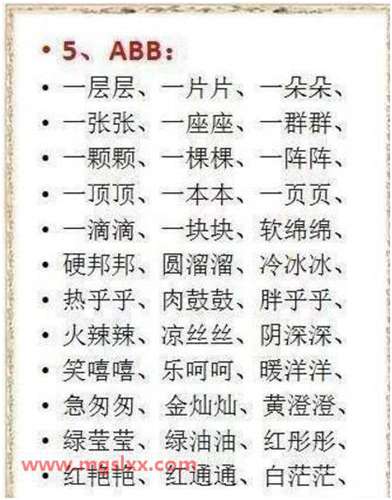 • 5、ABB：
• 一层层、一片片、一朵朵、
• 一张张、一座座、一群群、
• 一颗颗、一棵棵、一阵阵、
• 一顶顶、一本本、一页页、
• 一滴滴、一块块、软绵绵、
• 硬邦邦、圆溜溜、冷冰冰、
• 热乎乎、肉鼓鼓、胖乎乎、
• 火辣辣、凉丝丝、阴深深、
• 笑嘻嘻、乐呵呵、暖洋洋、
• 急匆匆、金灿灿、黄澄澄、
• 绿莹莹、绿油油、红彤彤、
www.mgslxx.com
• 红艳艳、红通通、白茫茫、